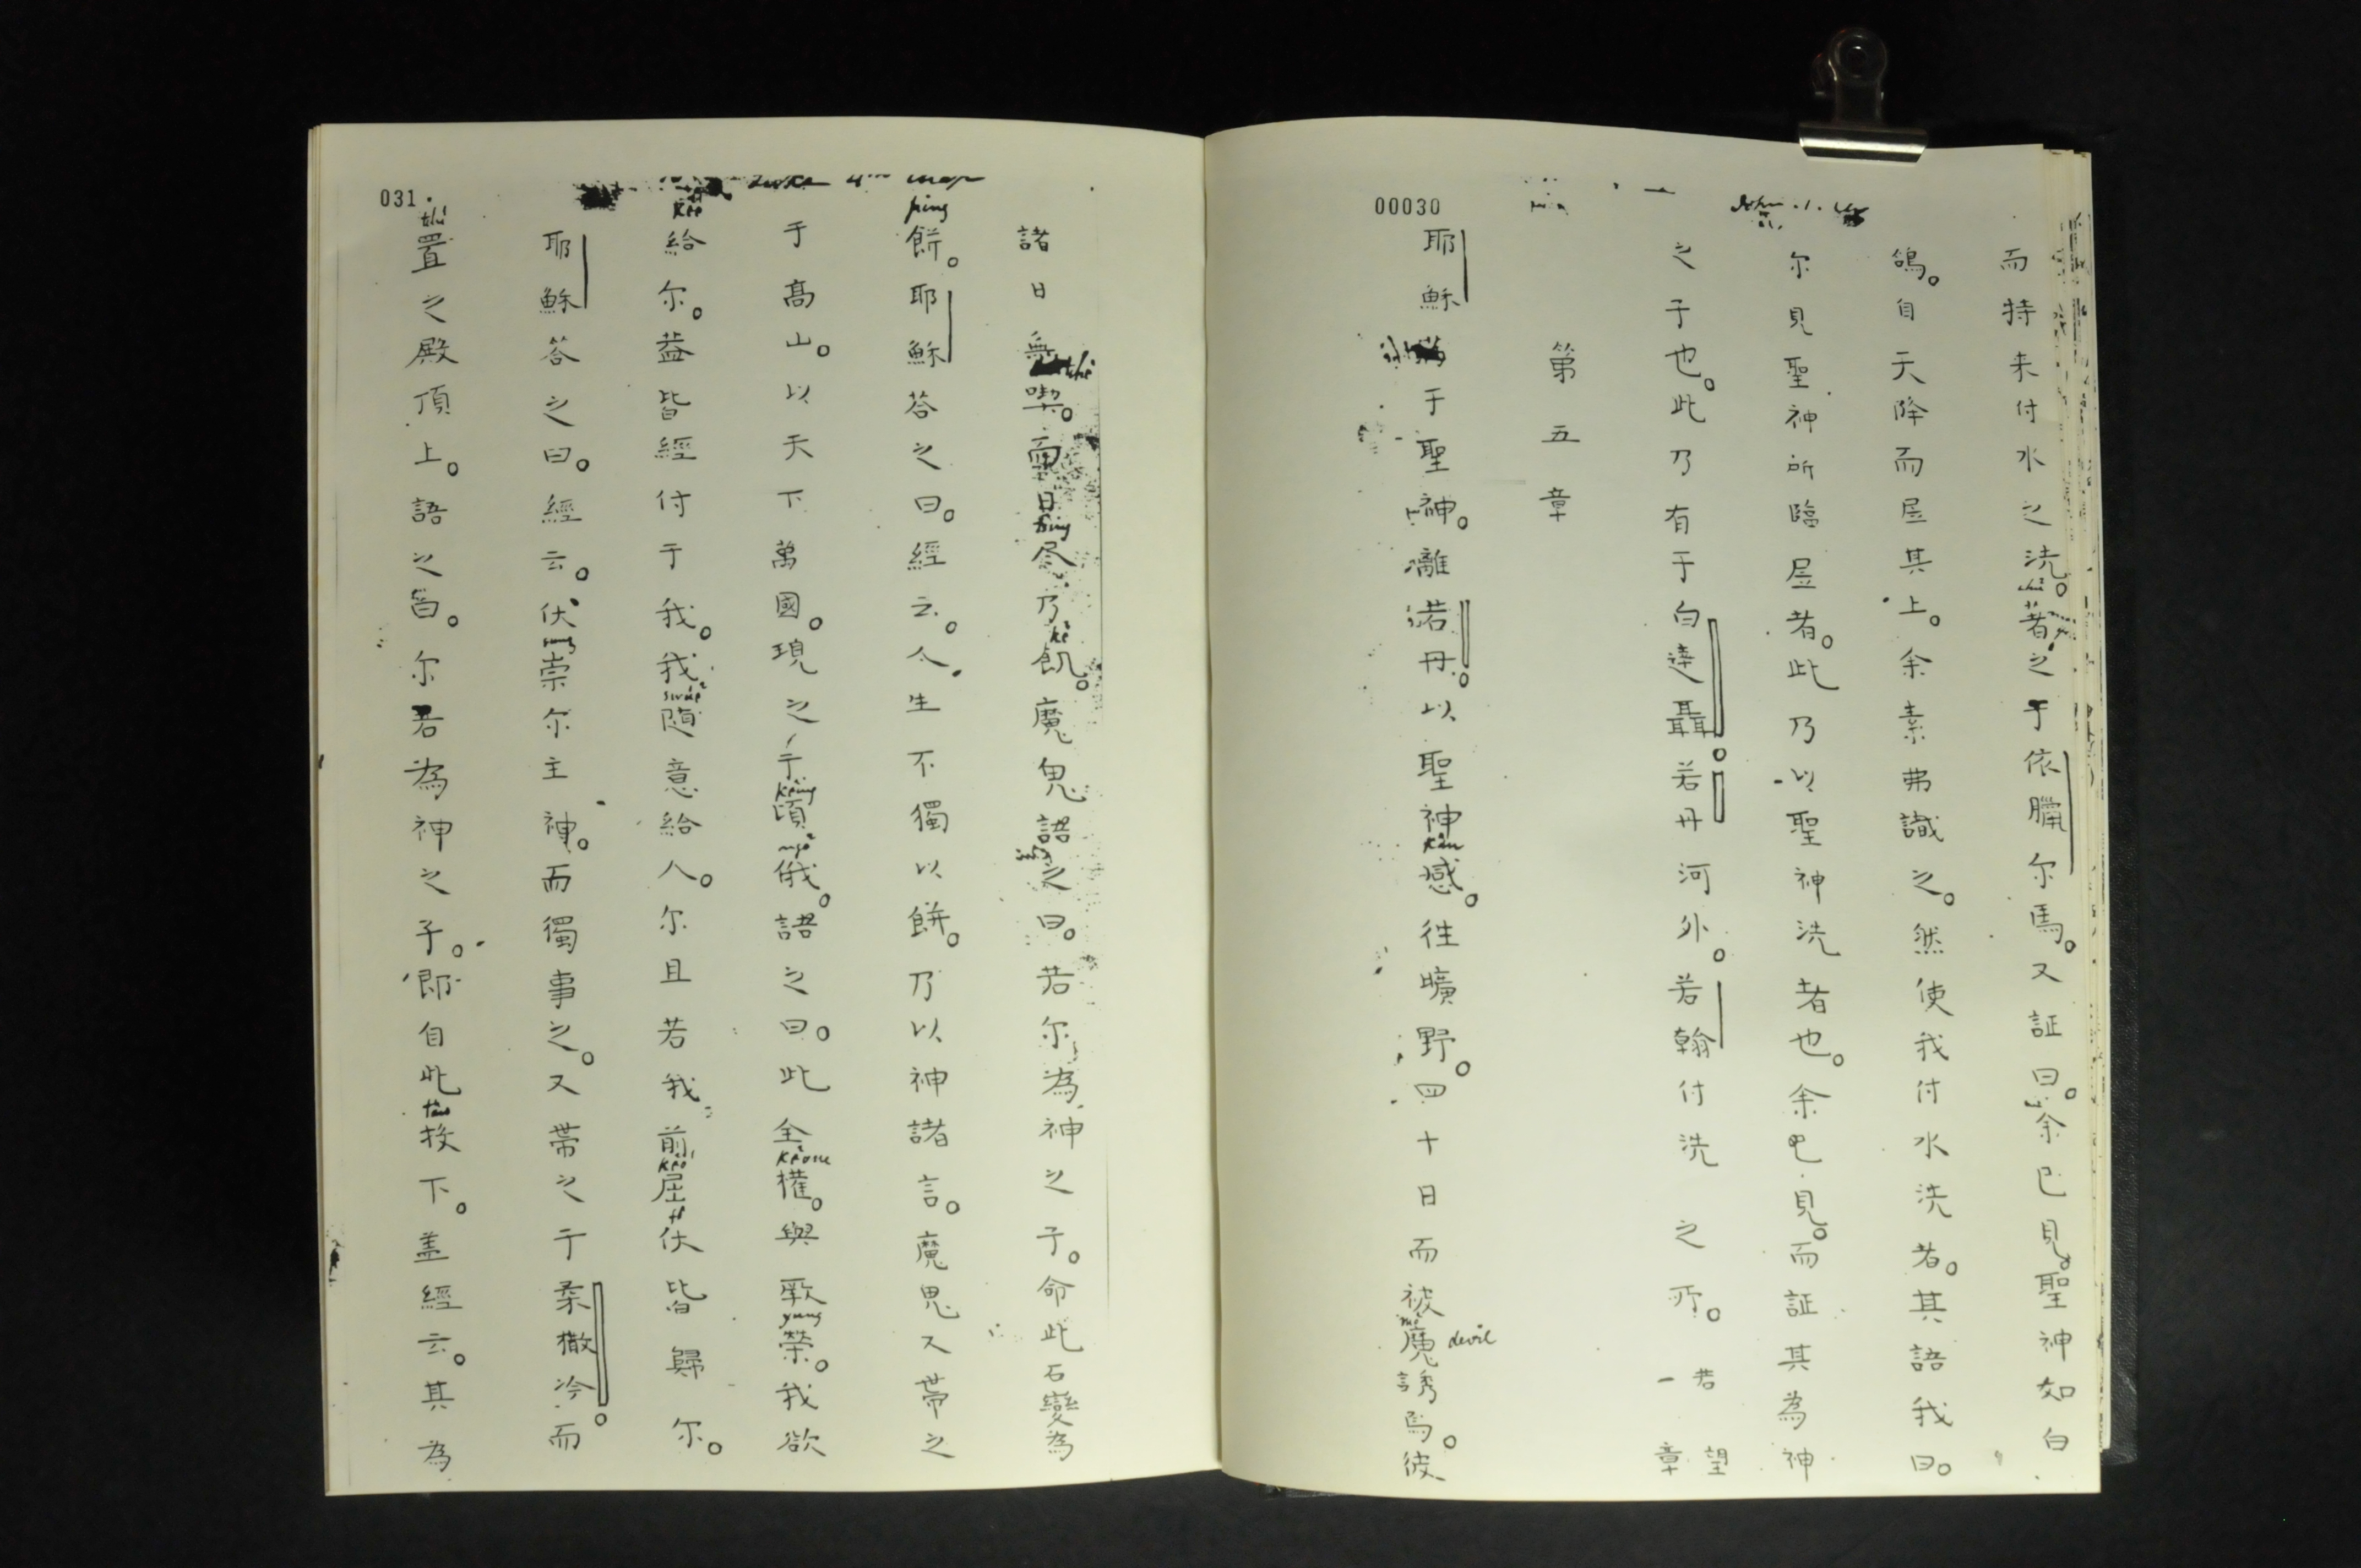 00030
John . 1.
而持来付水之洗。著之于依臘尔馬。又証曰。余已見。聖神如白
鴿。自天降而居其上。余素弗識之。然使我付水洗者。其語我曰。
尔見聖神所臨居者。此乃以聖神洗者也。余已見。而証其為神
之子也。此乃有于白達聶。若丹河外。若翰付洗之所。若望一章
第五章
耶穌 于聖神。離若丹。以聖神感。往曠野。四十日而被魔誘焉。彼
kàn
devil
031
諸日無喫。而日尽乃飢。魔鬼語之曰。若尔為神之子。命此石變為
餅。耶穌答之曰。經云。人生不獨以餅。乃以神諸言。魔鬼又带之
ping
于高山。以天下萬國。現之于頃俄。語之曰。此全權。與厥榮。我欲
給尔。葢皆經付于我。我隨意給人。尔且若我前屈伏皆歸尔。
耶穌答之曰。經云。伏崇尔主神。而獨事之。又带之于柔撒冷。而
置之殿頂上。語之曰。尔若為神之子。即自此投下。盖經云。其為